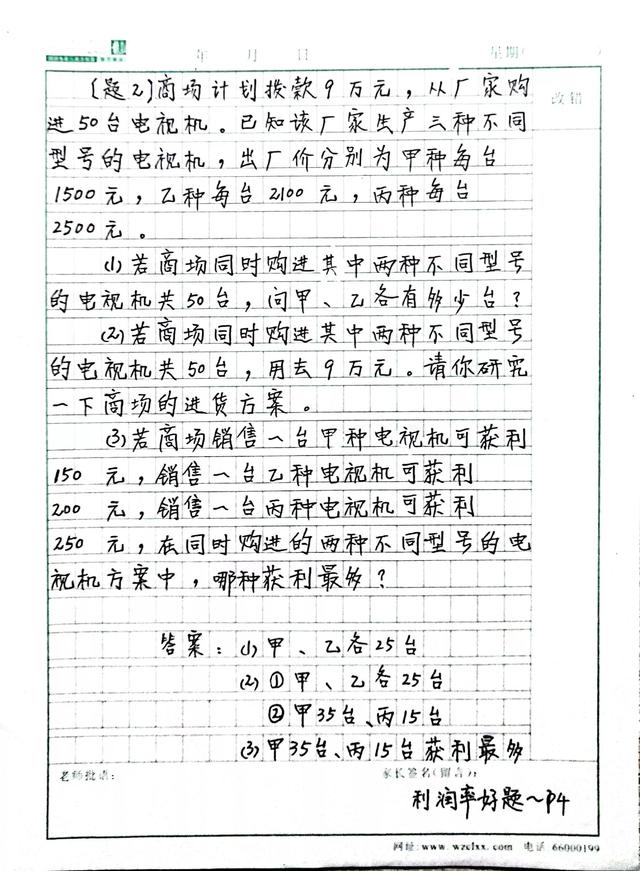 年 月 日 星期
改错
〔题2〕商场计划拨款9万元，从厂家购
进50台电视机。已知该厂家生产三种不同
型号的电视机，出厂价分别为甲种每台
1500元，乙种每台2100元，丙种每台
2500元。
(1)若商场同时购进其中两种不同型号
的电视机共50台，问甲、乙各有多少台？
(2)若商场同时购进其中两种不同型号
的电视机共50台，用去9万元。请你研究
一下商场的进货方案。
(3)若商场销售一台甲种电视机可获利
150 元，销售一台乙种电视机可获利
200 元，销售一台丙种电视机可获利
250 元，在同时购进的两种不同型号的电
视机方案中，哪种获利最多？
答案：(1)甲、乙各25台
(2)①甲、乙各25台
②甲35台、丙15台
(3)甲35台、丙15台获利最多
老师批语： 家长签名(留言)：
利润率好题～P4
网址:www.wzclxx.com 电话 66000199